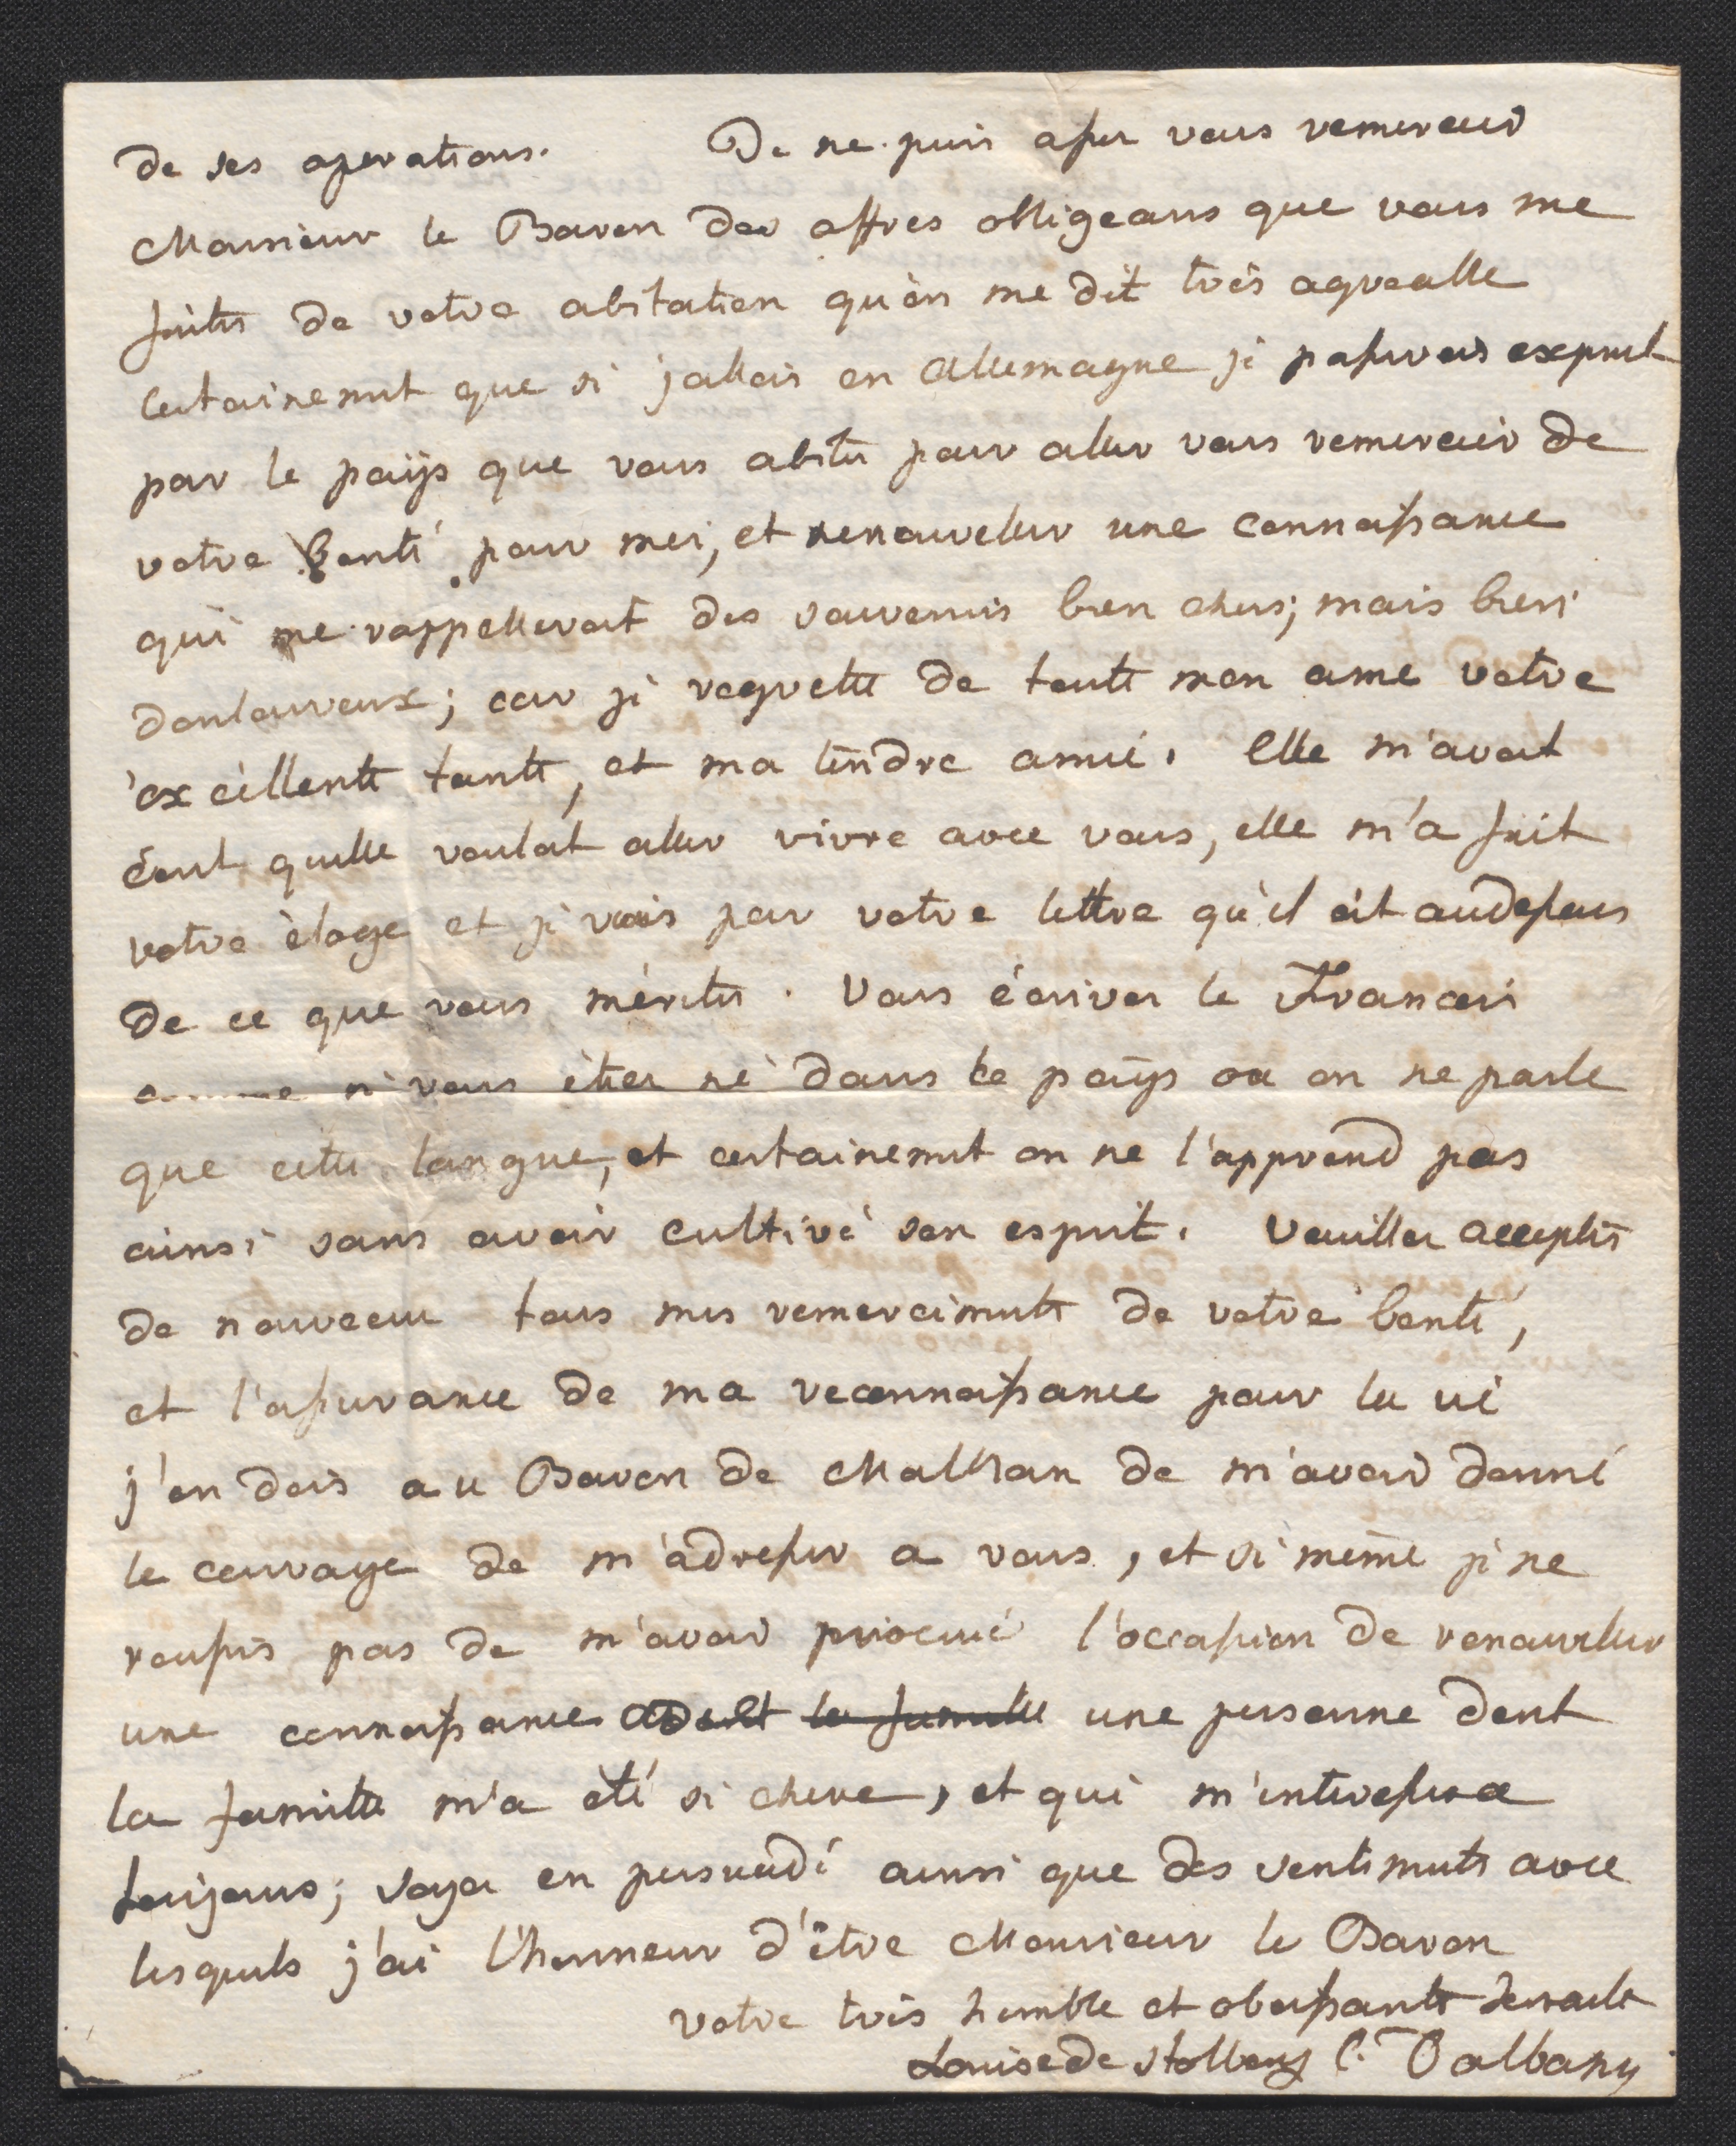 de ses operations. Je ne puis assez vous remercier
Monsieur le Baron des offres obligeans que vous me
faites de votre abitation qu'on me dit très agreable
certainement que si j'allois en Allemagne je passerois exprest
par le païs que vous abités pour aller vous remercier de
votre bonté pour moi, et renouveller une connoissance
qui me rappelleroit des souvenirs bien chers; mais bien
douloureux; car je regrette de toute mon ame votre
excellente tante, et ma tendre amie. Elle m'avoit
écrit quelle vouloit aller vivre avec vous, elle m'a fait
votre éloge et je vois par votre lettre qu'il est audessous
de ce que vous mérités. Vous écrivez le Francois
comme si vous étiez né dans le païs ou on ne parle
que cette langue, et certainement on ne l'apprend pas
ainsi sans avoir cultivé son esprit. Veuillez acceptés
de nouveau tous mes remerciments de votre bonté,
et l'assurance de ma reconnoissance pour la vie
j'en dois au Baron de Malzan de m'avoir donné
le courage de m'adresser a vous, et si même je ne
reussis pas de m'avoir procuré l'occassion de renouveller
une connoissance dont la famille une personne dont
la famille m'a été si chere, et qui m'interessera
toujours; soyez en persuadé ainsi que des sentiments avec
lesquels j'ai l'honneur d'être Monsieur le Baron
votre très humble et obeissante servante
Louise de Stolberg C. D'albany